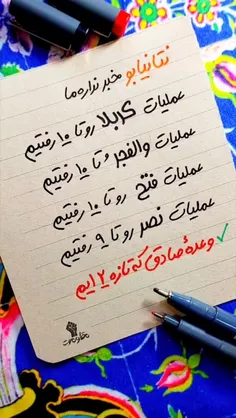 نتانیابو مخبر نداره ما
عملیات کربلا رو تا ۱۰ رفتیم
عملیات والفجر و تا ۱۰ رفتیم
عملیات فتح رو تا ۱۰ رفتیم
عملیات نصر رو تا ۹ رفتیم
وعدهٔ صادق که تازه ۲ ایم